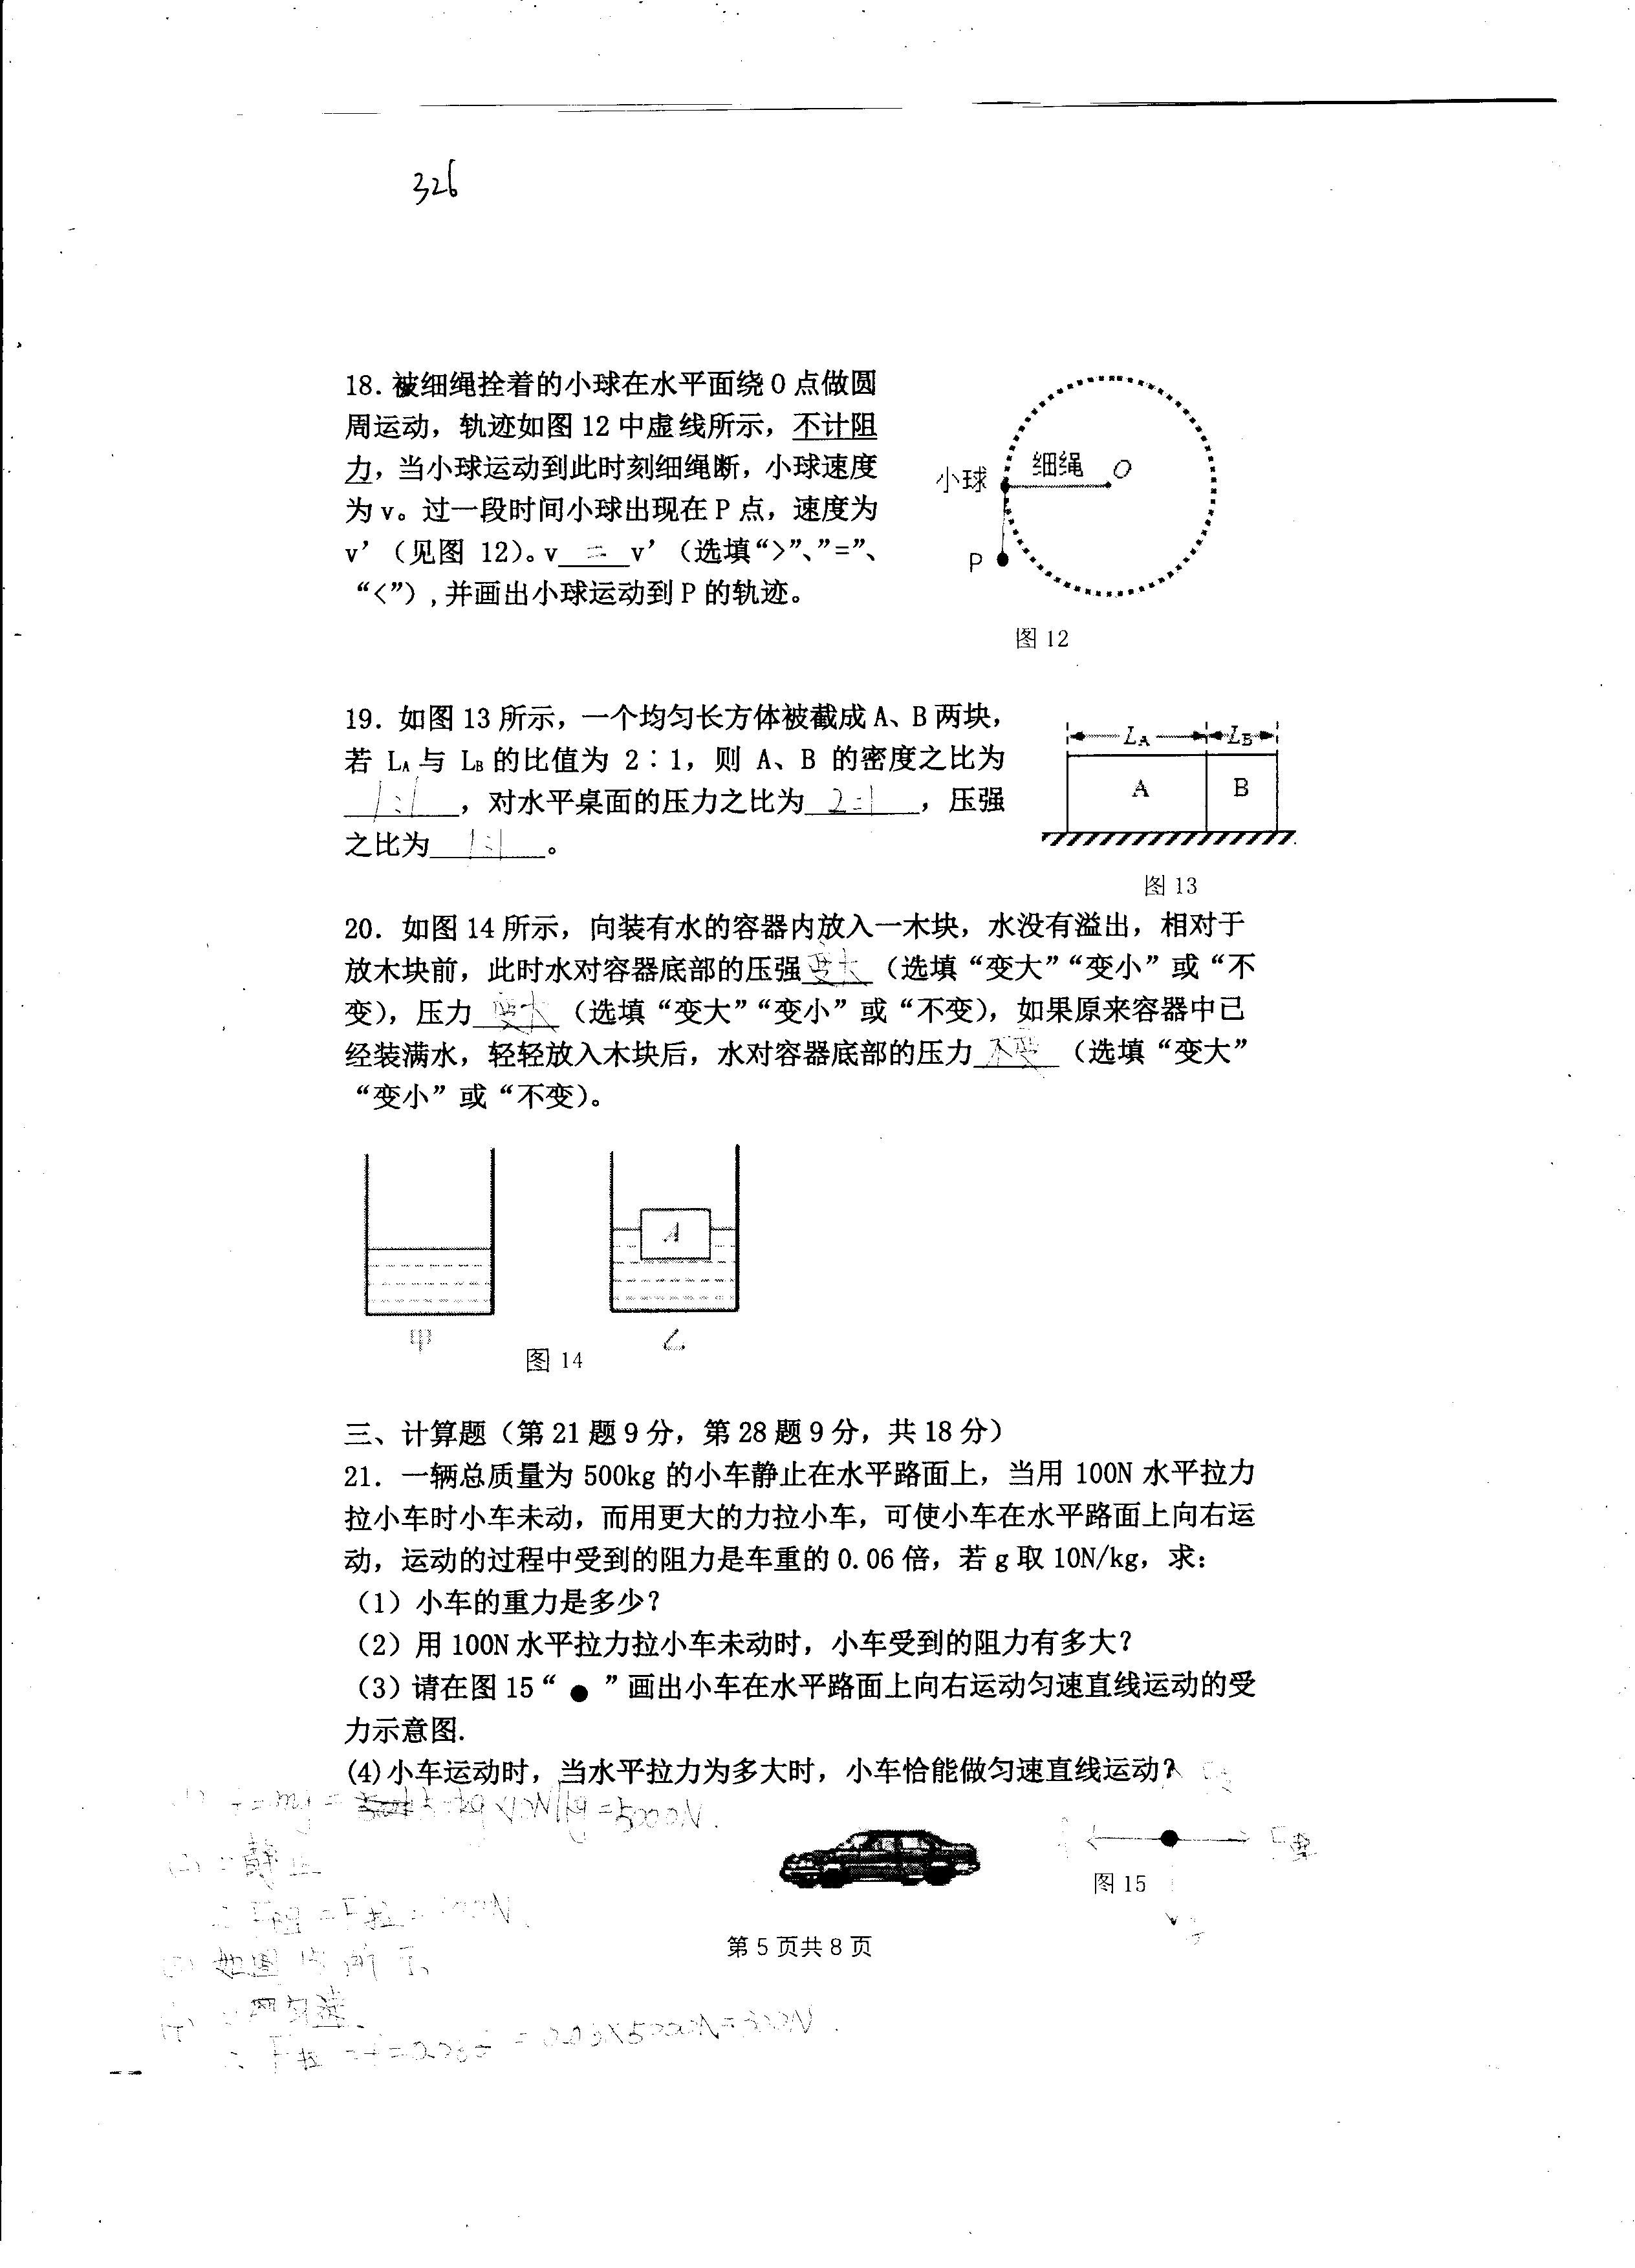 326
18. 被细绳拴着的小球在水平面绕 O 点做圆
周运动，轨迹如图 12 中虚线所示，不计阻
力，当小球运动到此时刻细绳断，小球速度
为 v。过一段时间小球出现在 P 点，速度为
v’（见图 12）。v = v’（选填“>”、”=”、
“<”）,并画出小球运动到 P 的轨迹。
小球 细绳 O
P
图 12
19. 如图 13 所示，一个均匀长方体被截成 A、B 两块，
若 LA 与 LB 的比值为 2∶1，则 A、B 的密度之比为
1:1，对水平桌面的压力之比为 2:1，压强
之比为 1:1。
LA LB
A B
图 13
20. 如图 14 所示，向装有水的容器内放入一木块，水没有溢出，相对于
放木块前，此时水对容器底部的压强变大（选填“变大”“变小”或“不
变），压力变大（选填“变大”“变小”或“不变），如果原来容器中已
经装满水，轻轻放入木块后，水对容器底部的压力不变（选填“变大”
“变小”或“不变）。
A
甲 乙
图 14
三、计算题（第 21 题 9 分，第 28 题 9 分，共 18 分）
21. 一辆总质量为 500kg 的小车静止在水平路面上，当用 100N 水平拉力
拉小车时小车未动，而用更大的力拉小车，可使小车在水平路面上向右运
动，运动的过程中受到的阻力是车重的 0.06 倍，若 g 取 10N/kg，求：
（1）小车的重力是多少？
（2）用 100N 水平拉力拉小车未动时，小车受到的阻力有多大？
（3）请在图 15“ ● ”画出小车在水平路面上向右运动匀速直线运动的受
力示意图.
(4)小车运动时，当水平拉力为多大时，小车恰能做匀速直线运动？
=mg= kg×10N/kg=5000N.
(2) ∵静止
∴F阻=F拉=100N.
图 15
第 5 页共 8 页
(3) 如图 15 所示
∴F拉=f= =0.06×5000N=300N.